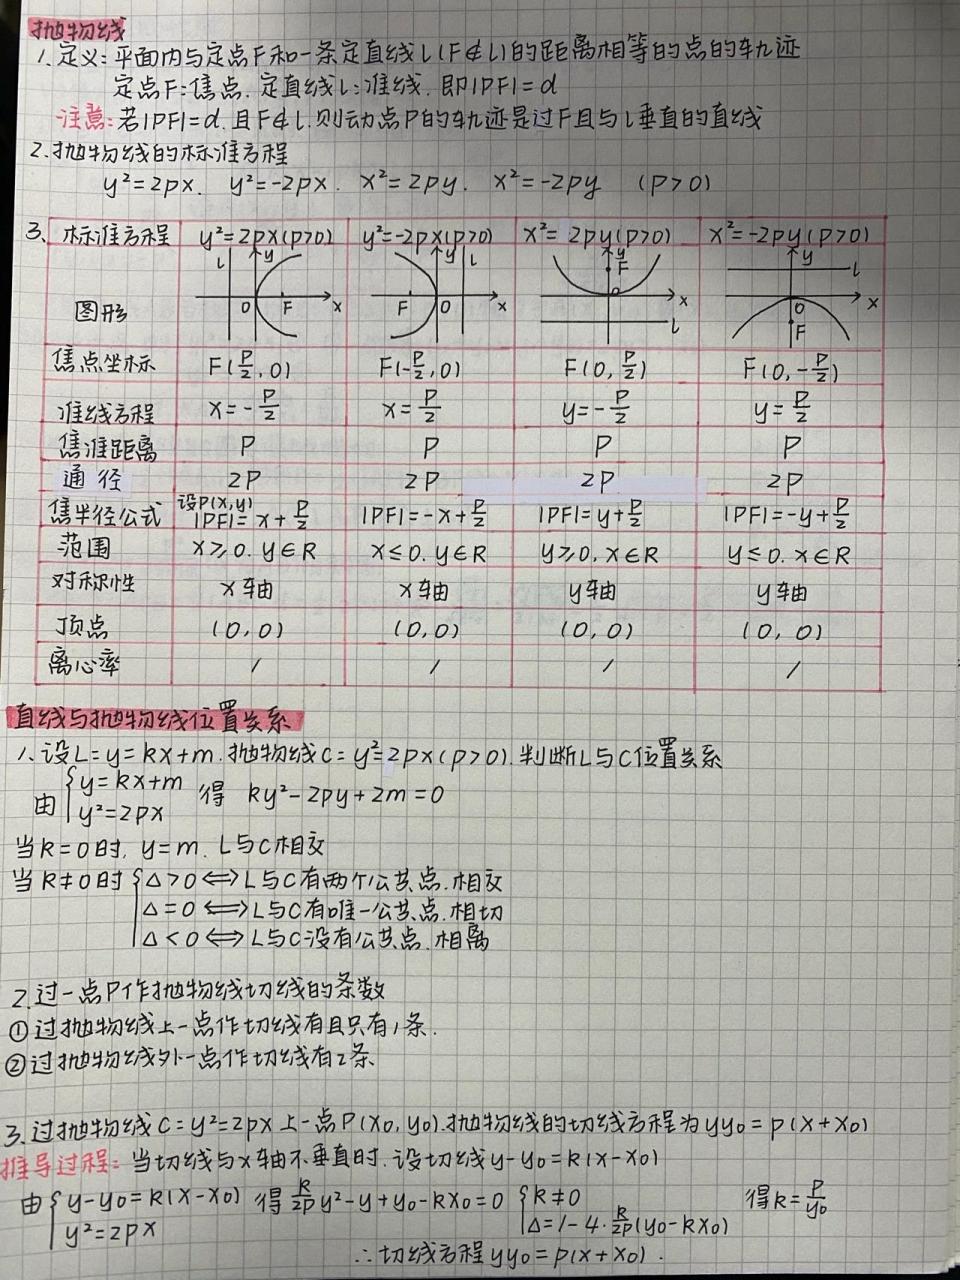 抛物线
1.定义:平面内与定点F和一条定直线l(F∉l)的距离相等的点的轨迹
定点F:焦点.定直线l:准线.即|PF|=d
注意:若|PF|=d.且F∉l.则动点P的轨迹是过F且与l垂直的直线
2.抛物线的标准方程
y²=2px. y²=-2px. x²=2py. x²=-2py (p>0)
3. 标准方程 y²=2px(p>0) y²=-2px(p>0) x²=2py(p>0) x²=-2py(p>0)
图形 l y O F x F y l O x y F O x l y l x O F
焦点坐标 F(p/2,0) F(-p/2,0) F(0,p/2) F(0,-p/2)
准线方程 x=-p/2 x=p/2 y=-p/2 y=p/2
焦准距离 P P P P
通径 2P 2P 2P 2P
焦半径公式 设P(x,y) |PF|=x+p/2 |PF|=-x+p/2 |PF|=y+p/2 |PF|=-y+p/2
范围 x≥0.y∈R x≤0.y∈R y≥0,x∈R y≤0.x∈R
对称性 x轴 x轴 y轴 y轴
顶点 (0,0) (0,0) (0,0) (0,0)
离心率 / / / /
直线与抛物线位置关系
1.设L=y=kx+m.抛物线C=y²=2px(p>0).判断L与C位置关系
由{y=kx+m y²=2px 得 ky²-2py+2m=0
当k=0时,y=m.L与C相交
当k≠0时{Δ>0⟺L与C有两个公共点.相交
Δ=0⟺L与C有唯一公共点.相切
Δ<0⟺L与C没有公共点.相离
2.过一点P作抛物线切线的条数
①过抛物线上一点作切线有且只有1条.
②过抛物线外一点作切线有2条
3.过抛物线C=y²=2px上一点P(x₀,y₀).抛物线的切线方程为yy₀=p(x+x₀)
推导过程:当切线与x轴不垂直时.设切线y-y₀=k(x-x₀)
由{y-y₀=k(x-x₀) y²=2px 得 k/2p y²-y+y₀-kx₀=0 {k≠0 Δ=1-4·k/2p(y₀-kx₀) 得k=p/y₀
∴切线方程yy₀=p(x+x₀).